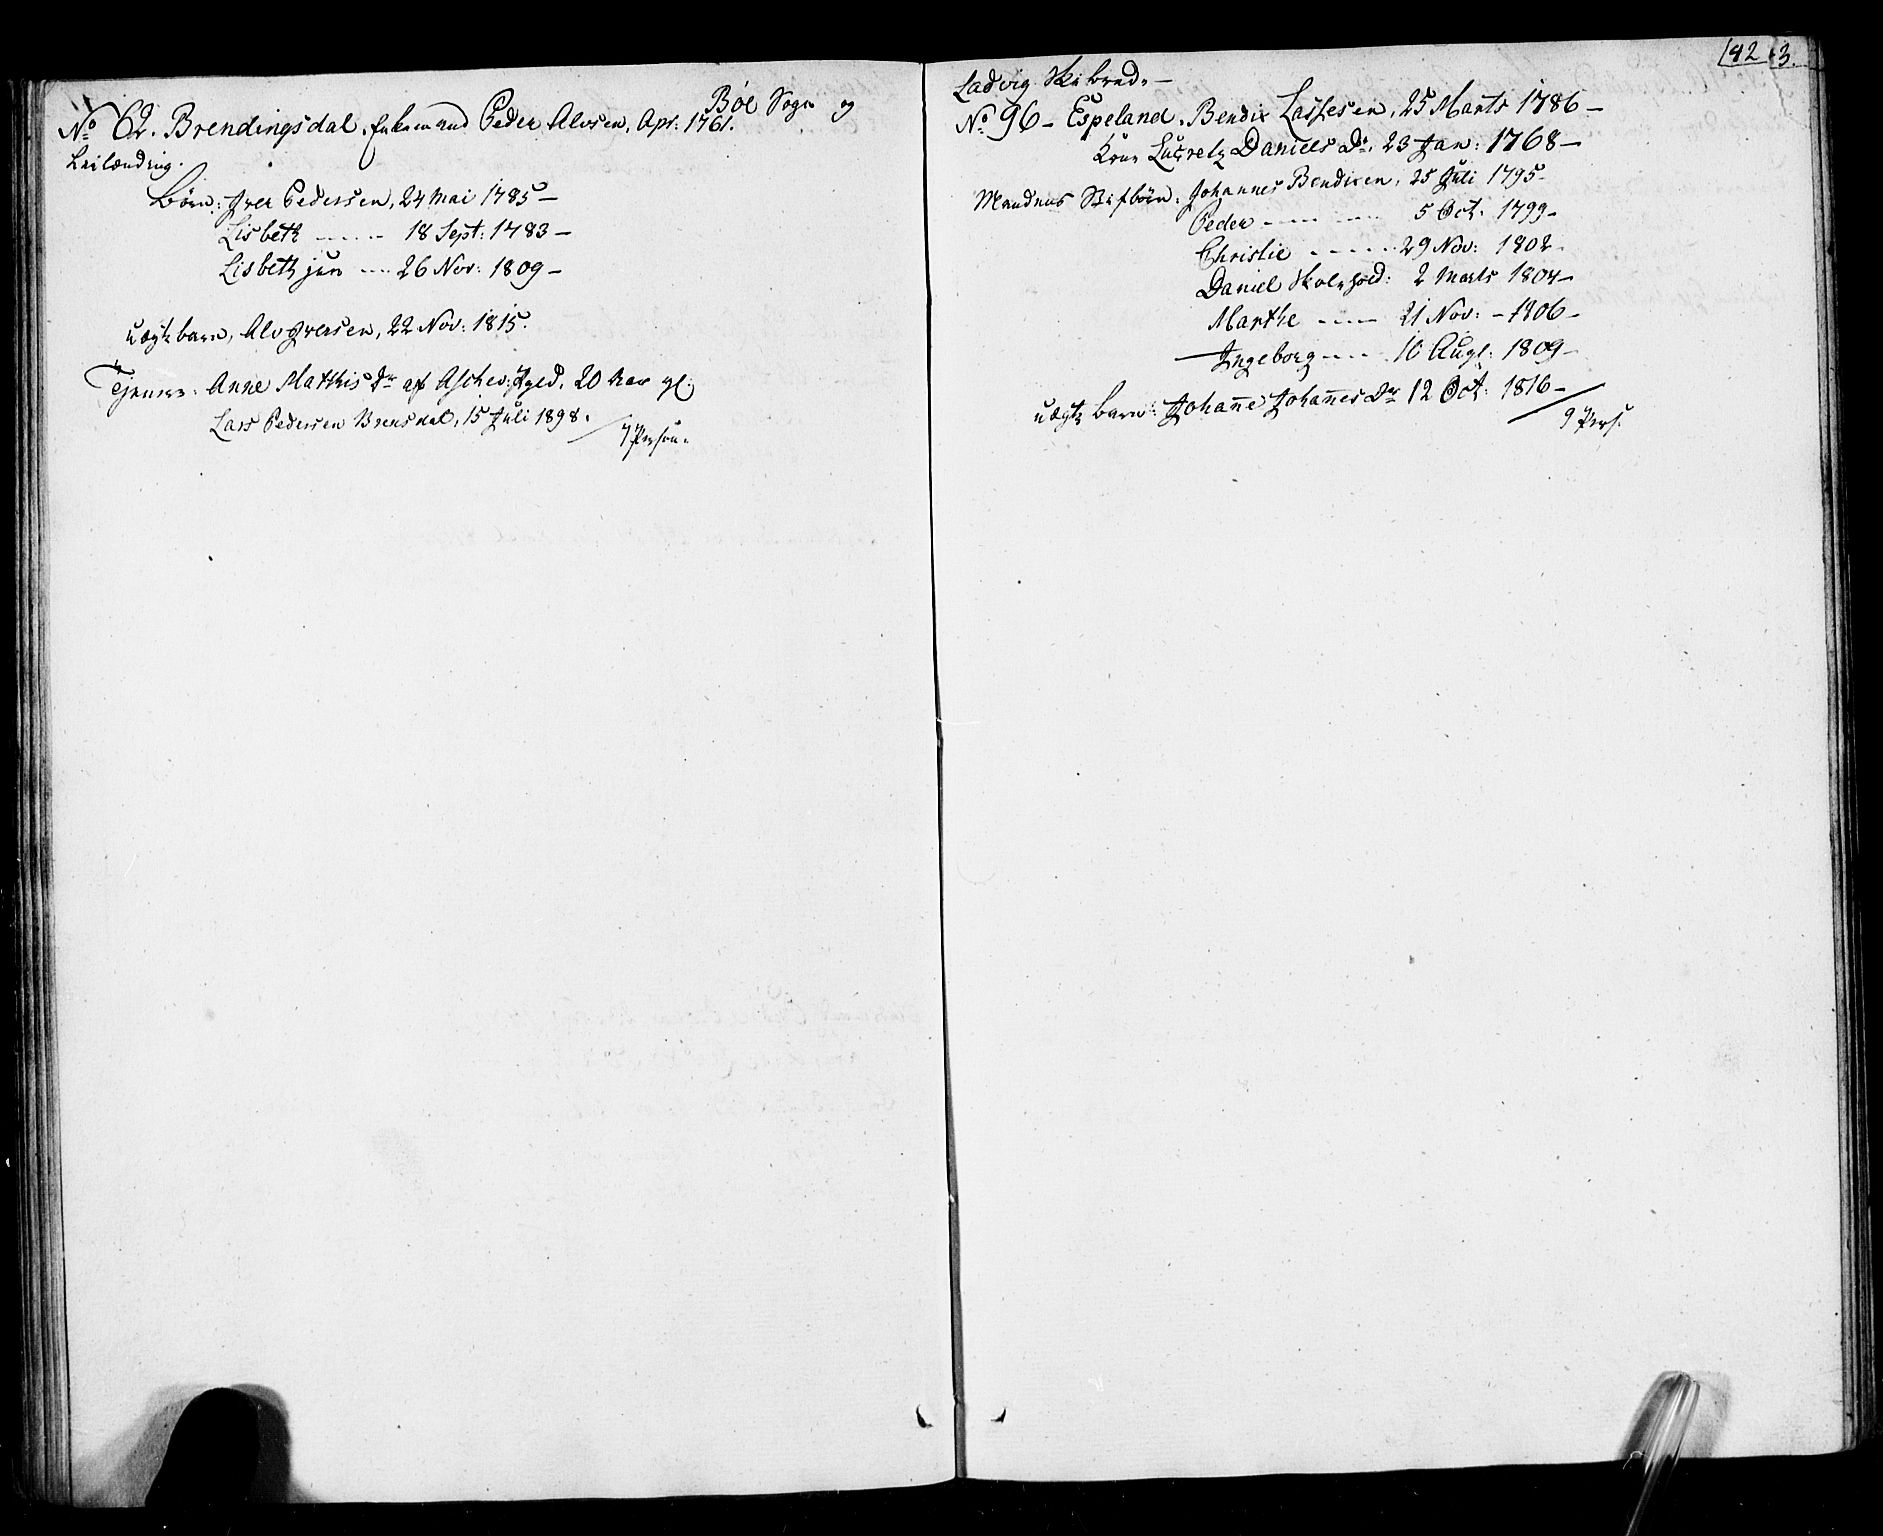 Böe Sogn og
No 62. Brendingsdal, Enkemand Peder Alvsen, Apr: 1761.
Leilænding.
Börn: Iver Pedersen, 24 Mai 1785 —
Lisbeth ---- 18 Sept: 1783 —
Lisbeth jun --- 26 Nov: 1809 —
uægte barn, Alv Iversen, 22 Nov: 1815.
Tjenere: Anne Mathis Dr af Askev: Pgld, 20 Aar gl:
Lars Pedersen Brensdal, 15 Juli 1898.
7 Person.
142 3.
Ladvig Skibred. —
No 96 — Espeland. Bendix Lassesen, 25 Marts 1786 —
Kone Lucretz Daniels Dr. 23 Jan: 1768 —
Mandens Stifbörn: Johannes Bendixen, 25 Juli 1795 -
Peder ---- 5 Oct: 1799 -
Christie ---- 29 Nov: 1802 -
Daniel Skolehold: 2 Marts 1804 -
Marthe ---- 21 Nov: - 1806 -
Ingeborg --- 10 Augt: 1809 -
uægte barn: Johanne Johannes Dr 12 Oct: 1816 —
9 Pers.